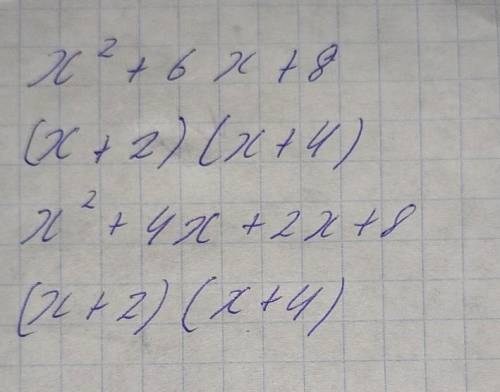 x² + 6x + 8
(x + 2)(x + 4)
x² + 4x + 2x + 8
(x + 2)(x + 4)